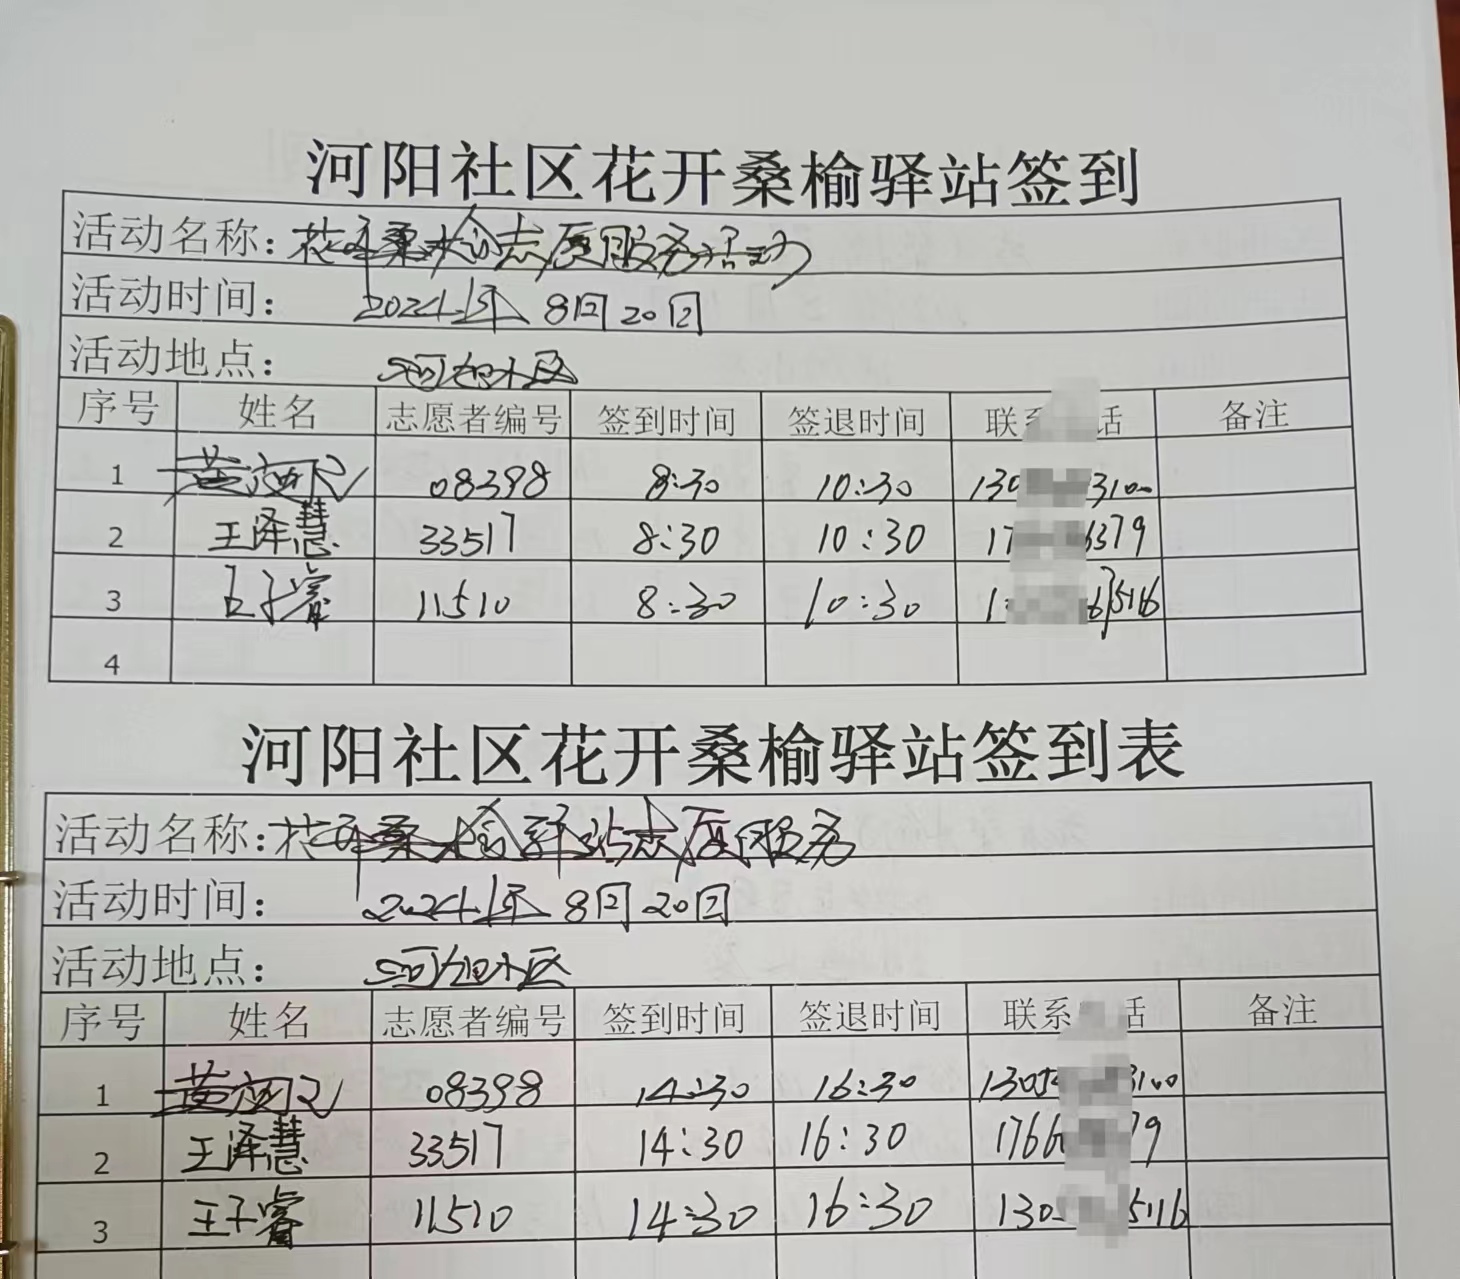 河阳社区花开桑榆驿站签到
活动名称：花开桑榆志愿服务活动
活动时间： 2024年 8月20日
活动地点： 河阳社区
序号 姓名 志愿者编号 签到时间 签退时间 联系 话 备注
1 08398 8:30 10:30 130 3100
2 王泽慧 33517 8:30 10:30 17 6379
3 王子睿 11510 8:30 10:30 1 5116
4
河阳社区花开桑榆驿站签到表
活动名称：花开桑榆驿站志愿服务
活动时间： 2024年 8月20日
活动地点： 河阳社区
序号 姓名 志愿者编号 签到时间 签退时间 联系 话 备注
1 08398 14:30 16:30 1305 3100
2 王泽慧 33517 14:30 16:30 1766 79
3 王子睿 11510 14:30 16:30 130 5116